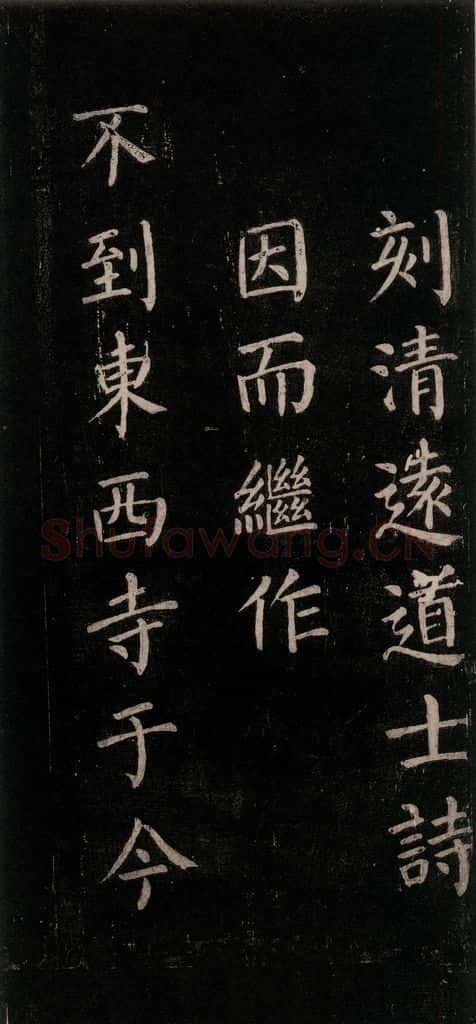 刻清遠道士詩
因而繼作
不到東西寺于今
Shufawang.CN